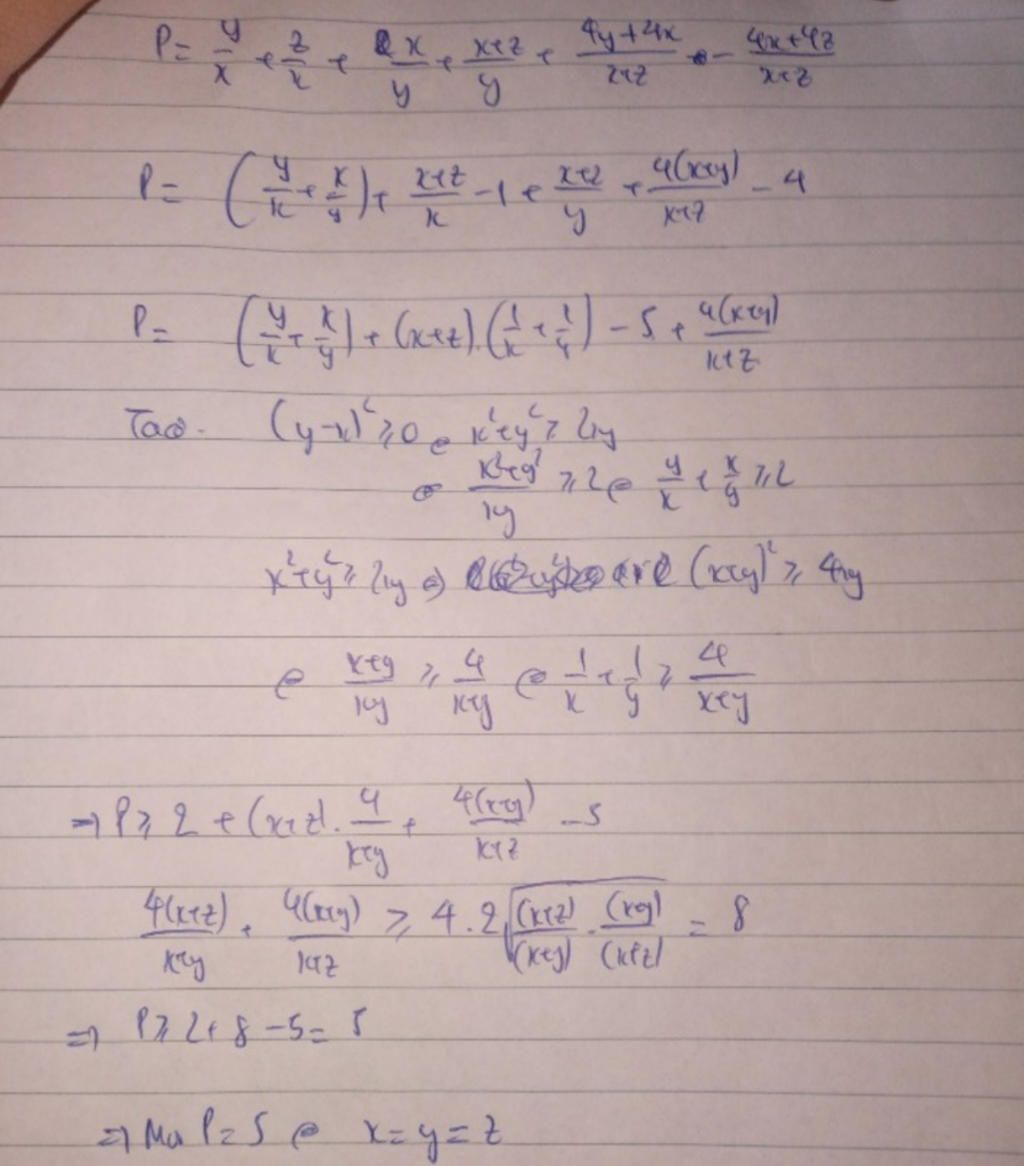 P = y/x + z/x + x/y + (x+z)/y + (4y+4x)/(x+z) - (4x+4z)/(x+z)
P = (y/x + x/y) + (x+z)/x - 1 + (x+z)/y + 4(x+y)/(x+z) - 4
P = (y/x + x/y) + (x+z).(1/x + 1/y) - 5 + 4(x+y)/(x+z)
Ta có. (y-x)² ≥ 0 ⇔ x²+y² ≥ 2xy
⇔ (x²+y²)/xy ≥ 2 ⇔ y/x + x/y ≥ 2
x²+y² ≥ 2xy ⇔ (x+y)² ≥ 4xy
⇔ (x+y)/xy ≥ 4/(x+y) ⇔ 1/x + 1/y ≥ 4/(x+y)
⇒ P ≥ 2 + (x+z).4/(x+y) + 4(x+y)/(x+z) - 5
4(x+z)/(x+y) + 4(x+y)/(x+z) ≥ 4.2√((x+z)/(x+y).(x+y)/(x+z)) = 8
⇒ P ≥ 2+8-5 = 5
⇒ P = 5 ⇔ x = y = z